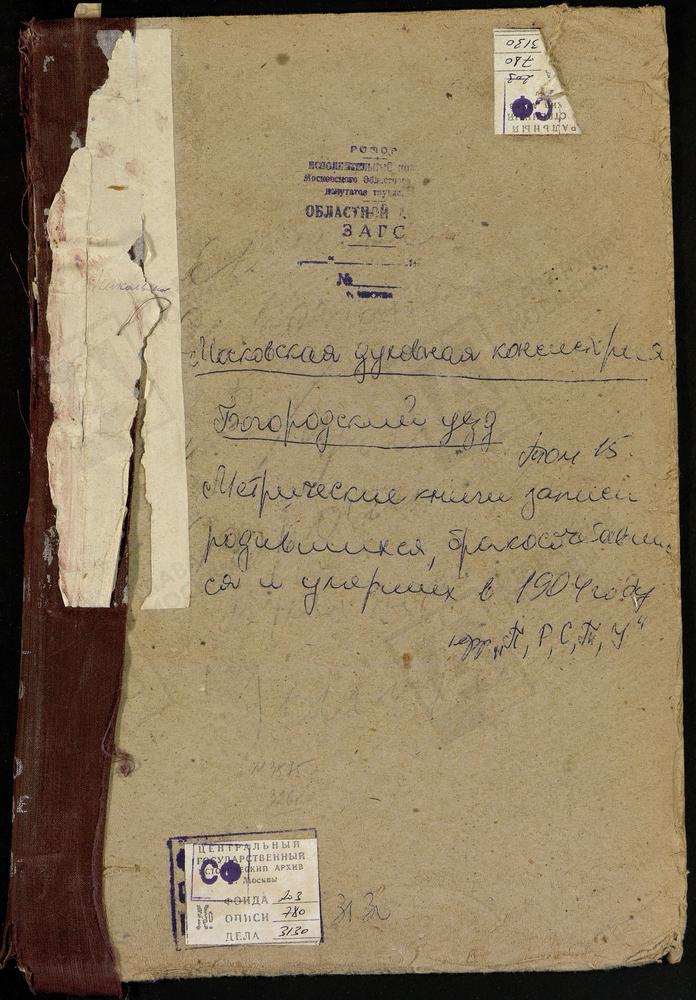 3130
780
203
СФ
РСФСР
ИСПОЛНИТЕЛЬНЫЙ
Московского Областного
депутатов
ОБЛАСТНОЙ
ЗАГС
№
г. Москва
Московская духовная консистория
Богородский уезд
Том 15.
Метрические книги записи
родившихся, бракосочетавши-
ся и умерших в 1904 году
"П, Р, С, Т, У"
N 3575
326
ЦЕНТРАЛЬНЫЙ
ГОСУДАРСТВЕННЫЙ
ИСТОРИЧЕСКИЙ АРХИВ
г. Москвы
СФ
ФОНДА 203
ОПИСИ 780
ДЕЛА 3130